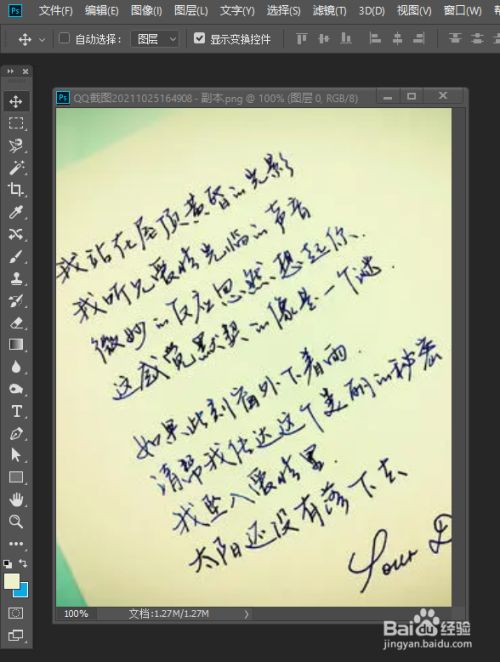 Ps 文件(F) 编辑(E) 图像(I) 图层(L) 文字(Y) 选择(S) 滤镜(T) 3D(D) 视图(V) 窗口(W)
自动选择： 图层 显示变换控件
QQ截图20211025164908 - 副本.png @ 100% (图层 0, RGB/8)
我站在屋顶黄昏的光影
我听见爱情光临的声音
微妙的反应忽然想起你、
这感觉默契的像是一个谜.
如果此刻窗外下着雨
请帮我传达这个美丽的秘密
我坠入爱情里.
太阳还没有落下去
Your D
100% 文档:1.27M/1.27M
Baidu 经验
jingyan.baidu.com